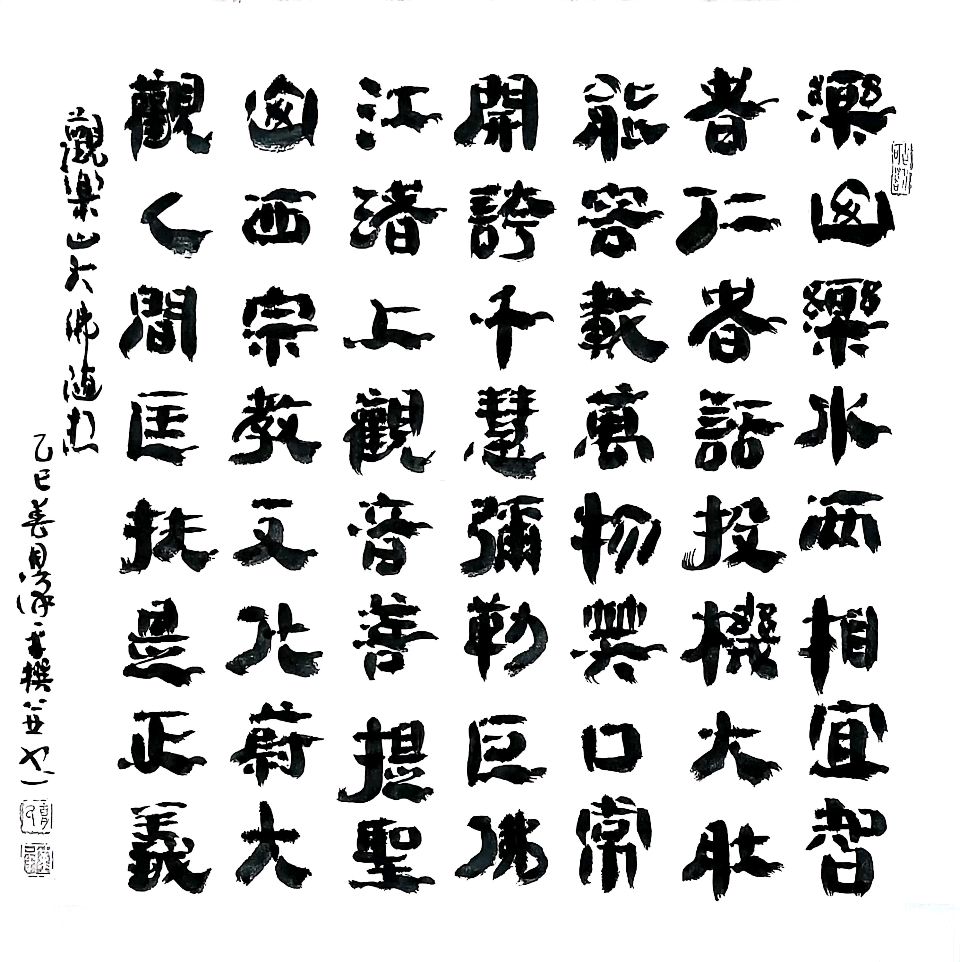 樂山樂水兩相宜智
者仁者話投機大肚
能容載萬物笑口常
開誇千慧彌勒巨佛
江渚上觀音善提聖
山西宗教文化蔚大
觀人間匡扶是正義
觀樂山大佛隨想
乙巳 撰並